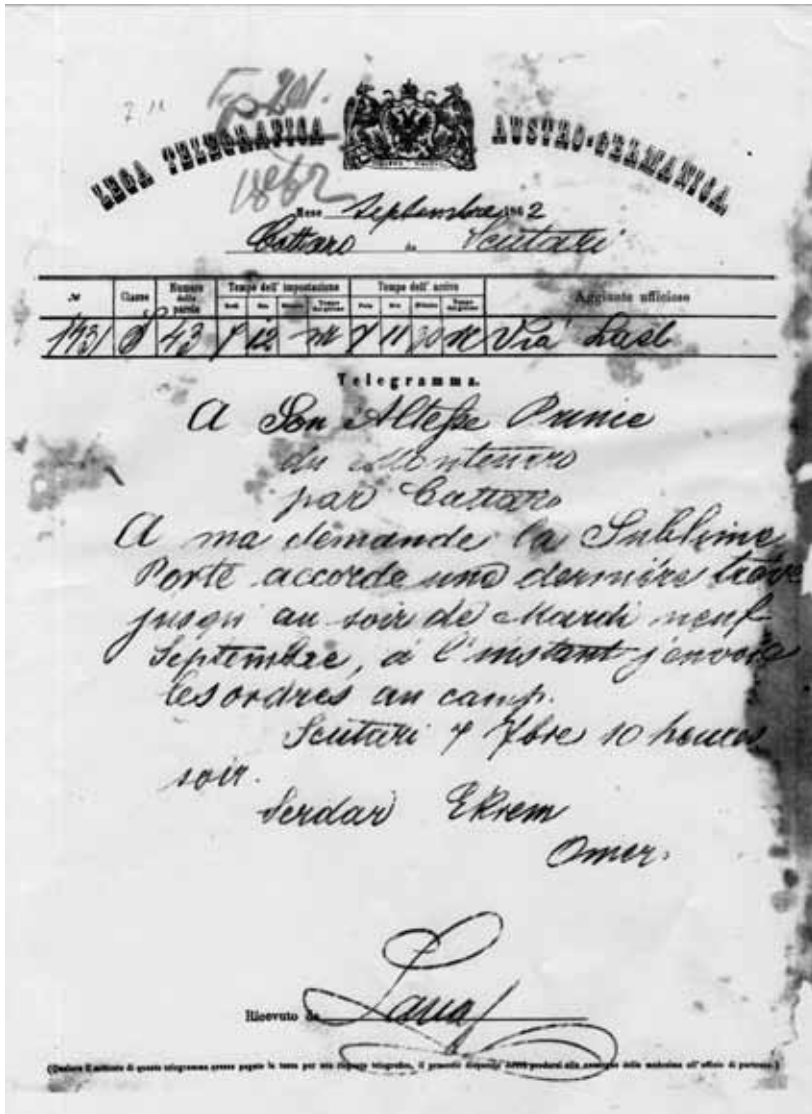 201.
1862
LEGA TELEGRAFICA AUSTRO-GERMANICA.
Mese Septembre 1862
Cattaro da Scutari
№ Classe Numero delle parole Tempo dell' impostazione Tempo dell' arrivo Aggiunte ufficiose
43 7 12 7 11 30 Via
Telegramma.
A Son Altesse Prince
du Montenero
par Cattaro
A ma demande la Sublime
Porte accorde une dernière trève
jusqu'au soir de Mardi neuf
Septembre, à l'instant j'envoie
les ordres au camp.
Scutari 7 7bre 10 heures
soir.
Serdar Ekrem
Omer.
Ricevuto da